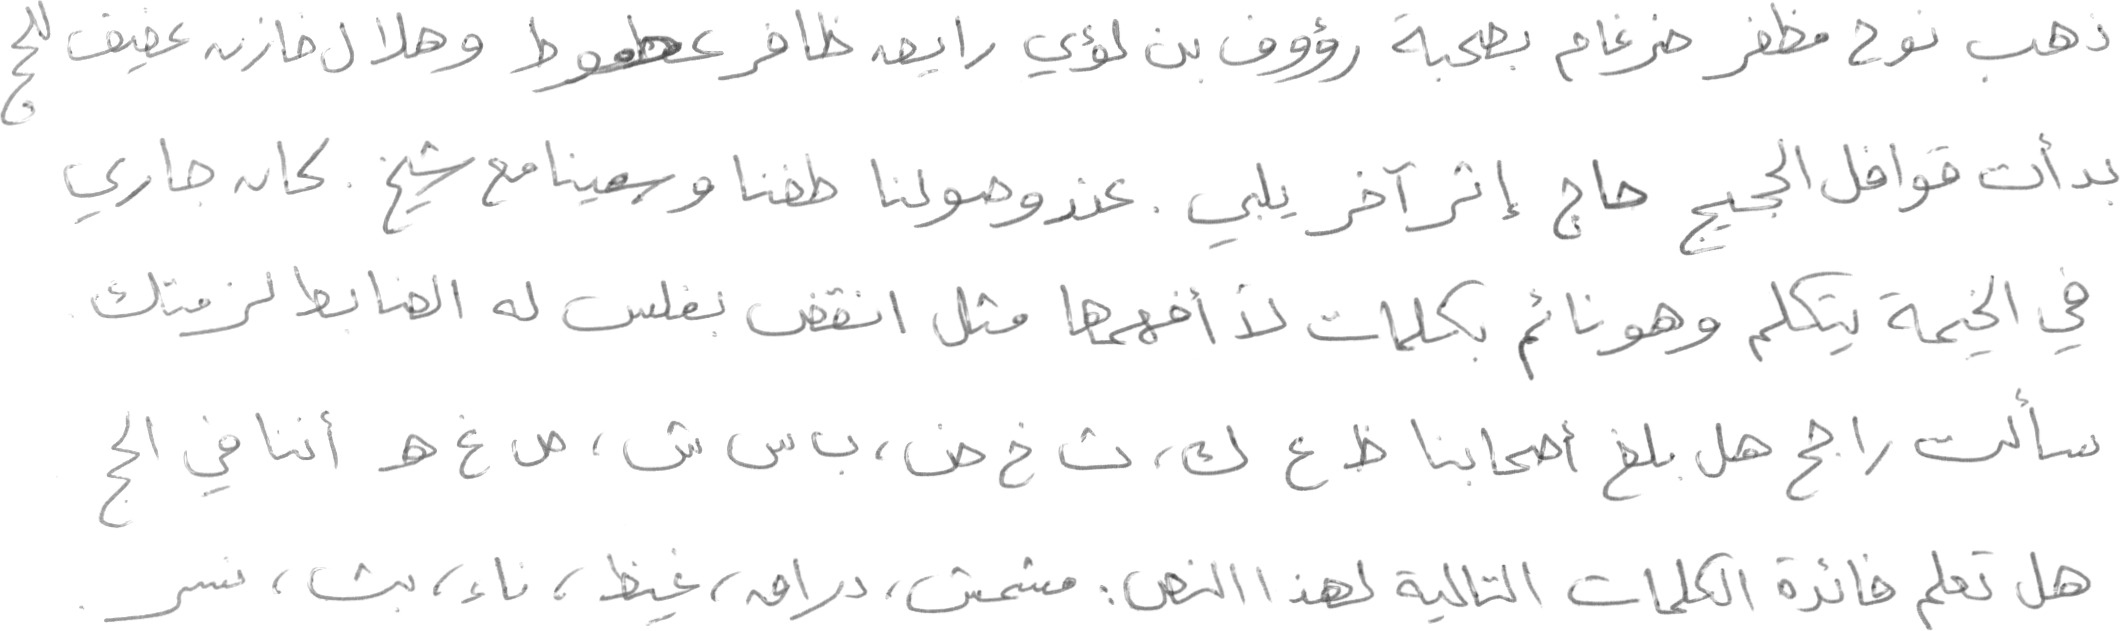 ذهب نوح مظفر ضرغام بصحبة رؤوف بن لؤي رايق ظافر عطعوط وهلال خازن عفيف للحج
بدأت قوافل الحجيج حاج إثر آخر يلبي . عند وصولنا طفنا وسعينا مع شيخ . كان جاري
في الخيمة يتكلم وهو نائم بكلمات لا أفهمها مثل انقض بفلس له الضابط لزمتك
سألت راجح هل بلغ أصحابنا ظ ع ك، ث خ ض، ب س ش، ص غ ه أننا في الحج
هل تعلم فائدة الكلمات التالية لهذا النص: مشمش، دراق، غيظ، ناء، بث، نسر .